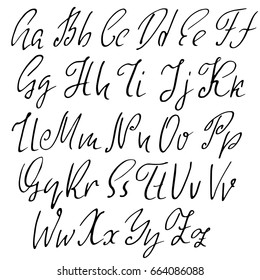 Aa Bb Cc Dd Ee Ff
Gg Hh Ii Jj Kk
Ll Mm Nn Oo Pp
Qq Rr Ss Tt Uu Vv
Ww Xx Yy Zz
www.shutterstock.com · 664086088